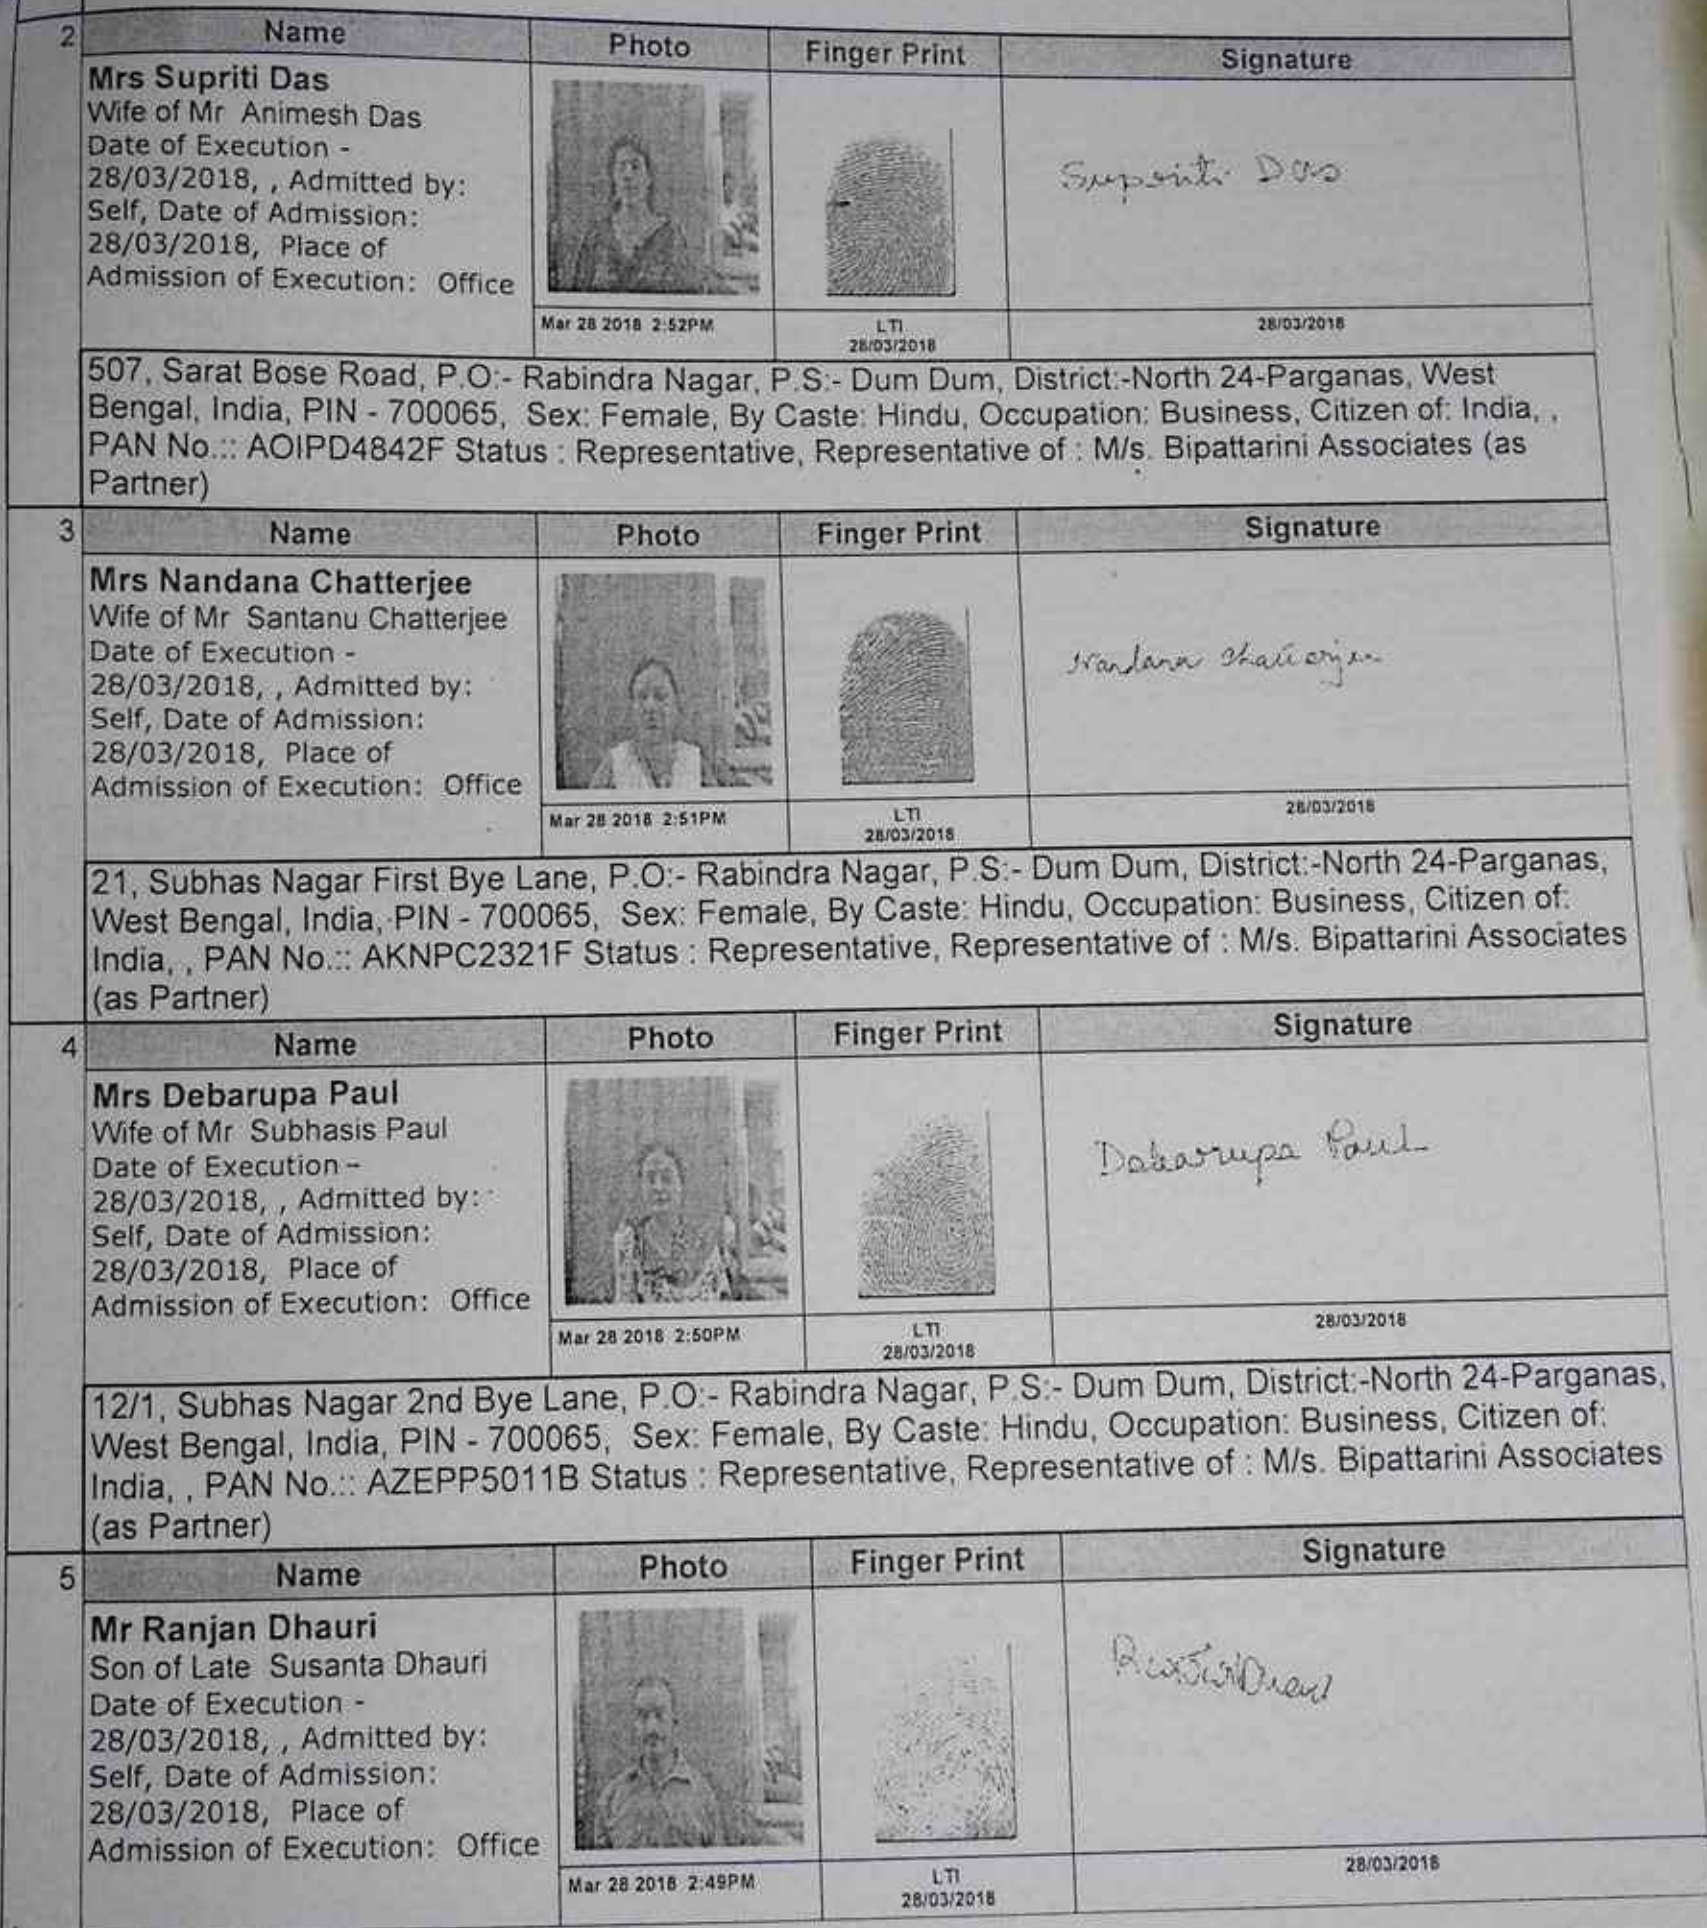 2 Name Photo Finger Print Signature
Mrs Supriti Das
Wife of Mr Animesh Das
Date of Execution -
28/03/2018, , Admitted by:
Self, Date of Admission:
28/03/2018, Place of
Admission of Execution: Office
Supriti Das
Mar 28 2018 2:52PM LTI 28/03/2018
28/03/2018
507, Sarat Bose Road, P.O:- Rabindra Nagar, P.S:- Dum Dum, District:-North 24-Parganas, West
Bengal, India, PIN - 700065, Sex: Female, By Caste: Hindu, Occupation: Business, Citizen of: India, ,
PAN No.:: AOIPD4842F Status : Representative, Representative of : M/s. Bipattarini Associates (as
Partner)
3 Name Photo Finger Print Signature
Mrs Nandana Chatterjee
Wife of Mr Santanu Chatterjee
Date of Execution -
28/03/2018, , Admitted by:
Self, Date of Admission:
28/03/2018, Place of
Admission of Execution: Office
Nandana Chatterjee
Mar 28 2018 2:51PM LTI 28/03/2018
28/03/2018
21, Subhas Nagar First Bye Lane, P.O:- Rabindra Nagar, P.S:- Dum Dum, District:-North 24-Parganas,
West Bengal, India, PIN - 700065, Sex: Female, By Caste: Hindu, Occupation: Business, Citizen of:
India, , PAN No.:: AKNPC2321F Status : Representative, Representative of : M/s. Bipattarini Associates
(as Partner)
4 Name Photo Finger Print Signature
Mrs Debarupa Paul
Wife of Mr Subhasis Paul
Date of Execution -
28/03/2018, , Admitted by:
Self, Date of Admission:
28/03/2018, Place of
Admission of Execution: Office
Debarupa Paul
Mar 28 2018 2:50PM LTI 28/03/2018
28/03/2018
12/1, Subhas Nagar 2nd Bye Lane, P.O:- Rabindra Nagar, P.S:- Dum Dum, District:-North 24-Parganas,
West Bengal, India, PIN - 700065, Sex: Female, By Caste: Hindu, Occupation: Business, Citizen of:
India, , PAN No.:: AZEPP5011B Status : Representative, Representative of : M/s. Bipattarini Associates
(as Partner)
5 Name Photo Finger Print Signature
Mr Ranjan Dhauri
Son of Late Susanta Dhauri
Date of Execution -
28/03/2018, , Admitted by:
Self, Date of Admission:
28/03/2018, Place of
Admission of Execution: Office
Mar 28 2018 2:49PM LTI 28/03/2018
28/03/2018